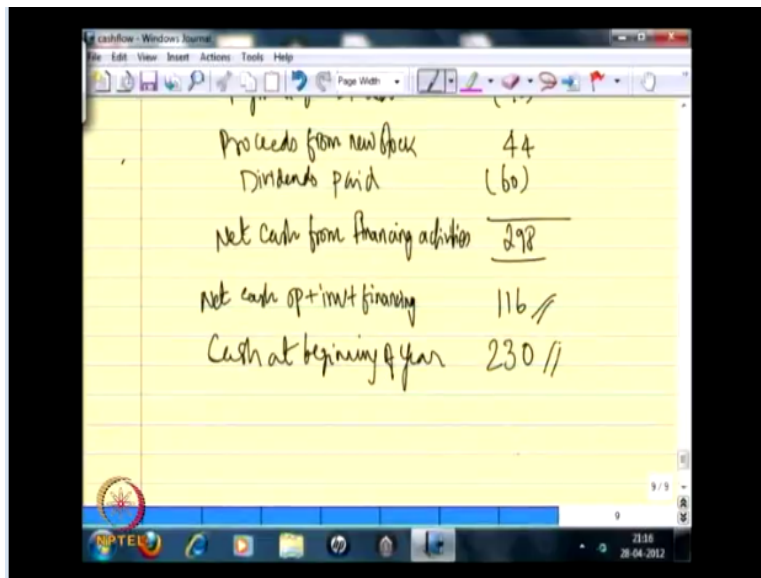 cashflow - Windows Journal
File Edit View Insert Actions Tools Help
Page Width
Proceeds from new stock 44
Dividends paid (60)
Net cash from financing activities 298
Net cash op + inv + financing 116
Cash at beginning of year 230
9 / 9
9
NPTEL
21:16
28-04-2012